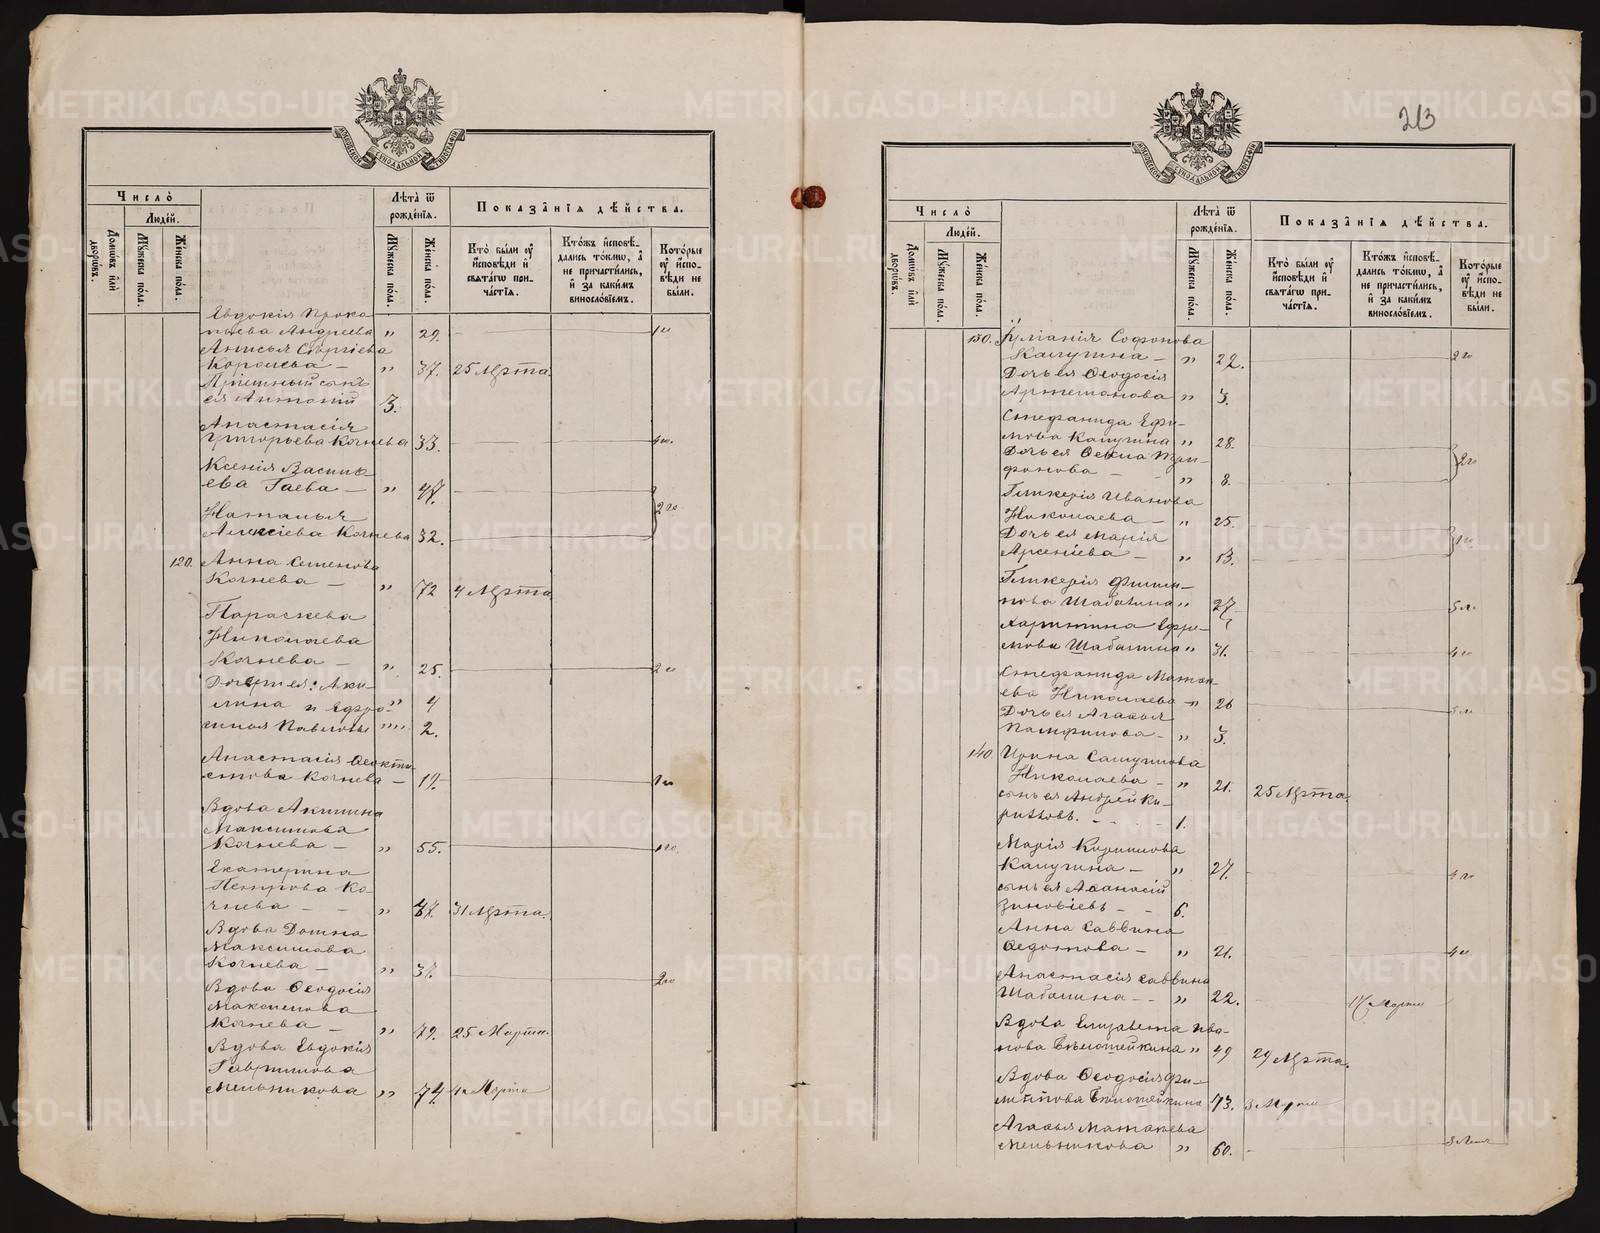 213
Число̀
Людей.
Домωвъ или дворωвъ.
Мꙋжеска пола.
Женска пола.
Лѣта̀ ѿ рожденїѧ.
Мꙋжеска пола.
Женска пола.
Показанїѧ дѣйства.
Кто̀ были оу҆ исповѣди и свѧтагω при-
частїѧ.
Кто́жъ исповѣ-
дались токмω, а҆
не причастились,
и за какимъ
винословїемъ.
Которые
оу҆ испо-
вѣди не
были.
Евдокія Проко-
пьева Андреева „ 29. 1 го
Анисья Сергіева
Королева — „ 37. 25 Марта.
Пріемный сынъ
ея Антоній 3.
Анастасія
Григорьева Кочнева 33. 4 го.
Ксенія Василь
ева Гаева — „ 47.
2 го
Наталья
Алексіева Кочнева 32.
120. Анна Семенова
Кочнева — „ 72 4 Марта
Параскева
Николаева
Кочнева — „ 25. 2 го
Дочери ея: Аки-
лина и Ефро- „ 4
синья Павловы „„ 2.
Анастасія Ѳеокти
стова Кочнева — 19. 1 го
Вдова Акилина
Максимова
Кочнева — „ 55. 1 го.
Екатерина
Петрова Ко-
чнева — — „ 37. 31 Марта.
Вдова Домна
Максимова
Кочнева — „ 37. 2 го
Вдова Ѳеодосія
Максимова
Кочнева — „ 79. 25 Марта.
Вдова Евдокія
Гаврилова
Мельникова „ 74. 4 Марта
Число̀
Людей.
Домωвъ или дворωвъ.
Мꙋжеска пола.
Женска пола.
Лѣта̀ ѿ рожденїѧ.
Мꙋжеска пола.
Женска пола.
Показанїѧ дѣйства.
Кто̀ были оу҆ исповѣди и свѧтагω при-
частїѧ.
Кто́жъ исповѣ-
дались токмω, а҆
не причастились,
и за какимъ
винословїемъ.
Которые
оу҆ испо-
вѣди не
были.
130. Іуліанія Софонова
Калугина — „ 22. 2 го
Дочь ея Ѳеодосія
Артемонова „ 3.
Стефанида Ефи-
мова Калугина „ 28.
2 го
Дочь ея Ѳекла
фонова — „ 8.
Гликерія Иванова
Николаева — „ 25.
1 го
Дочь ея Марія
Арсеніева — „ 13.
Гликерія Филип-
пова Шабалина „ 27 5 л.
Харитина Ефре-
мова Шабалина „ 31. 4 го
Стефанида Матѳ
ева Николаева „ 26
Дочь ея Агаѳья
Памфилова — „ 3.
140 Ирина Самуилова
Николаева — „ 21. 25 Марта.
сынъ ея Андрей Ки-
рилловъ. — 1.
Марія Кирилова
Калугина — „ 27. 4 го
сынъ ея Аѳанасій
Зиновіевъ — — 6.
Анна Саввина
Ѳедотова — „ 21. 4 го
Анастасія Саввина
Шабалина — — „ 22. 17 Марта
Вдова Елизавета Ива-
нова Бѣлотейкина „ 49 29 Марта.
Вдова Ѳеодосія Фи-
липпова Бѣлотейкина 73. 3 Марта
Агаѳья Матѳиева
Мельникова „ 60.